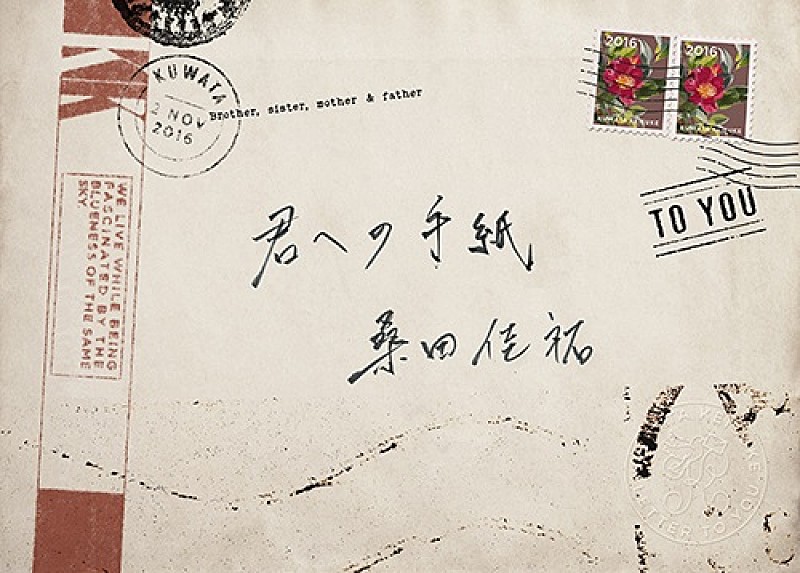 KUWATA
2 NOV
2016
Brother, sister, mother & father
2016
2016
TO YOU
君への手紙
桑田佳祐
WE LIVE WHILE BEING
FASCINATED BY THE
BLUENESS OF THE SAME
SKY
KK
LETTER TO YOU